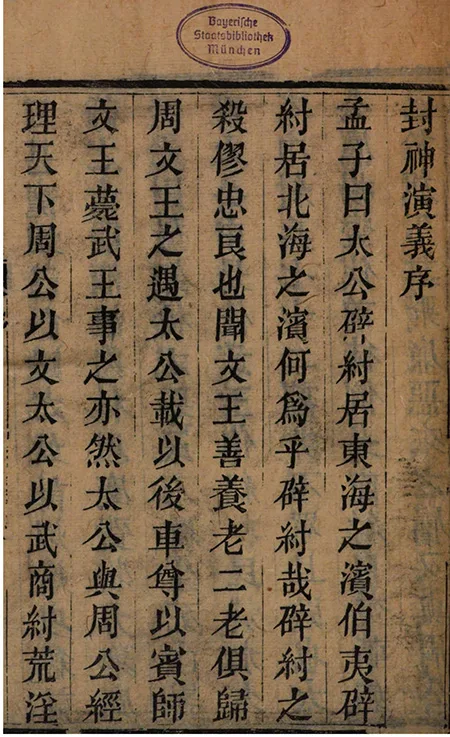 Bayerische
Staatsbibliothek
München
封神演義序
孟子曰太公辟紂居東海之濱伯夷辟
紂居北海之濱何爲乎辟紂哉辟紂之
殺僇忠良也聞文王善養老二老俱歸
周文王之遇太公載以後車尊以賓師
文王薨武王事之亦然太公與周公經
理天下周公以文太公以武商紂荒淫